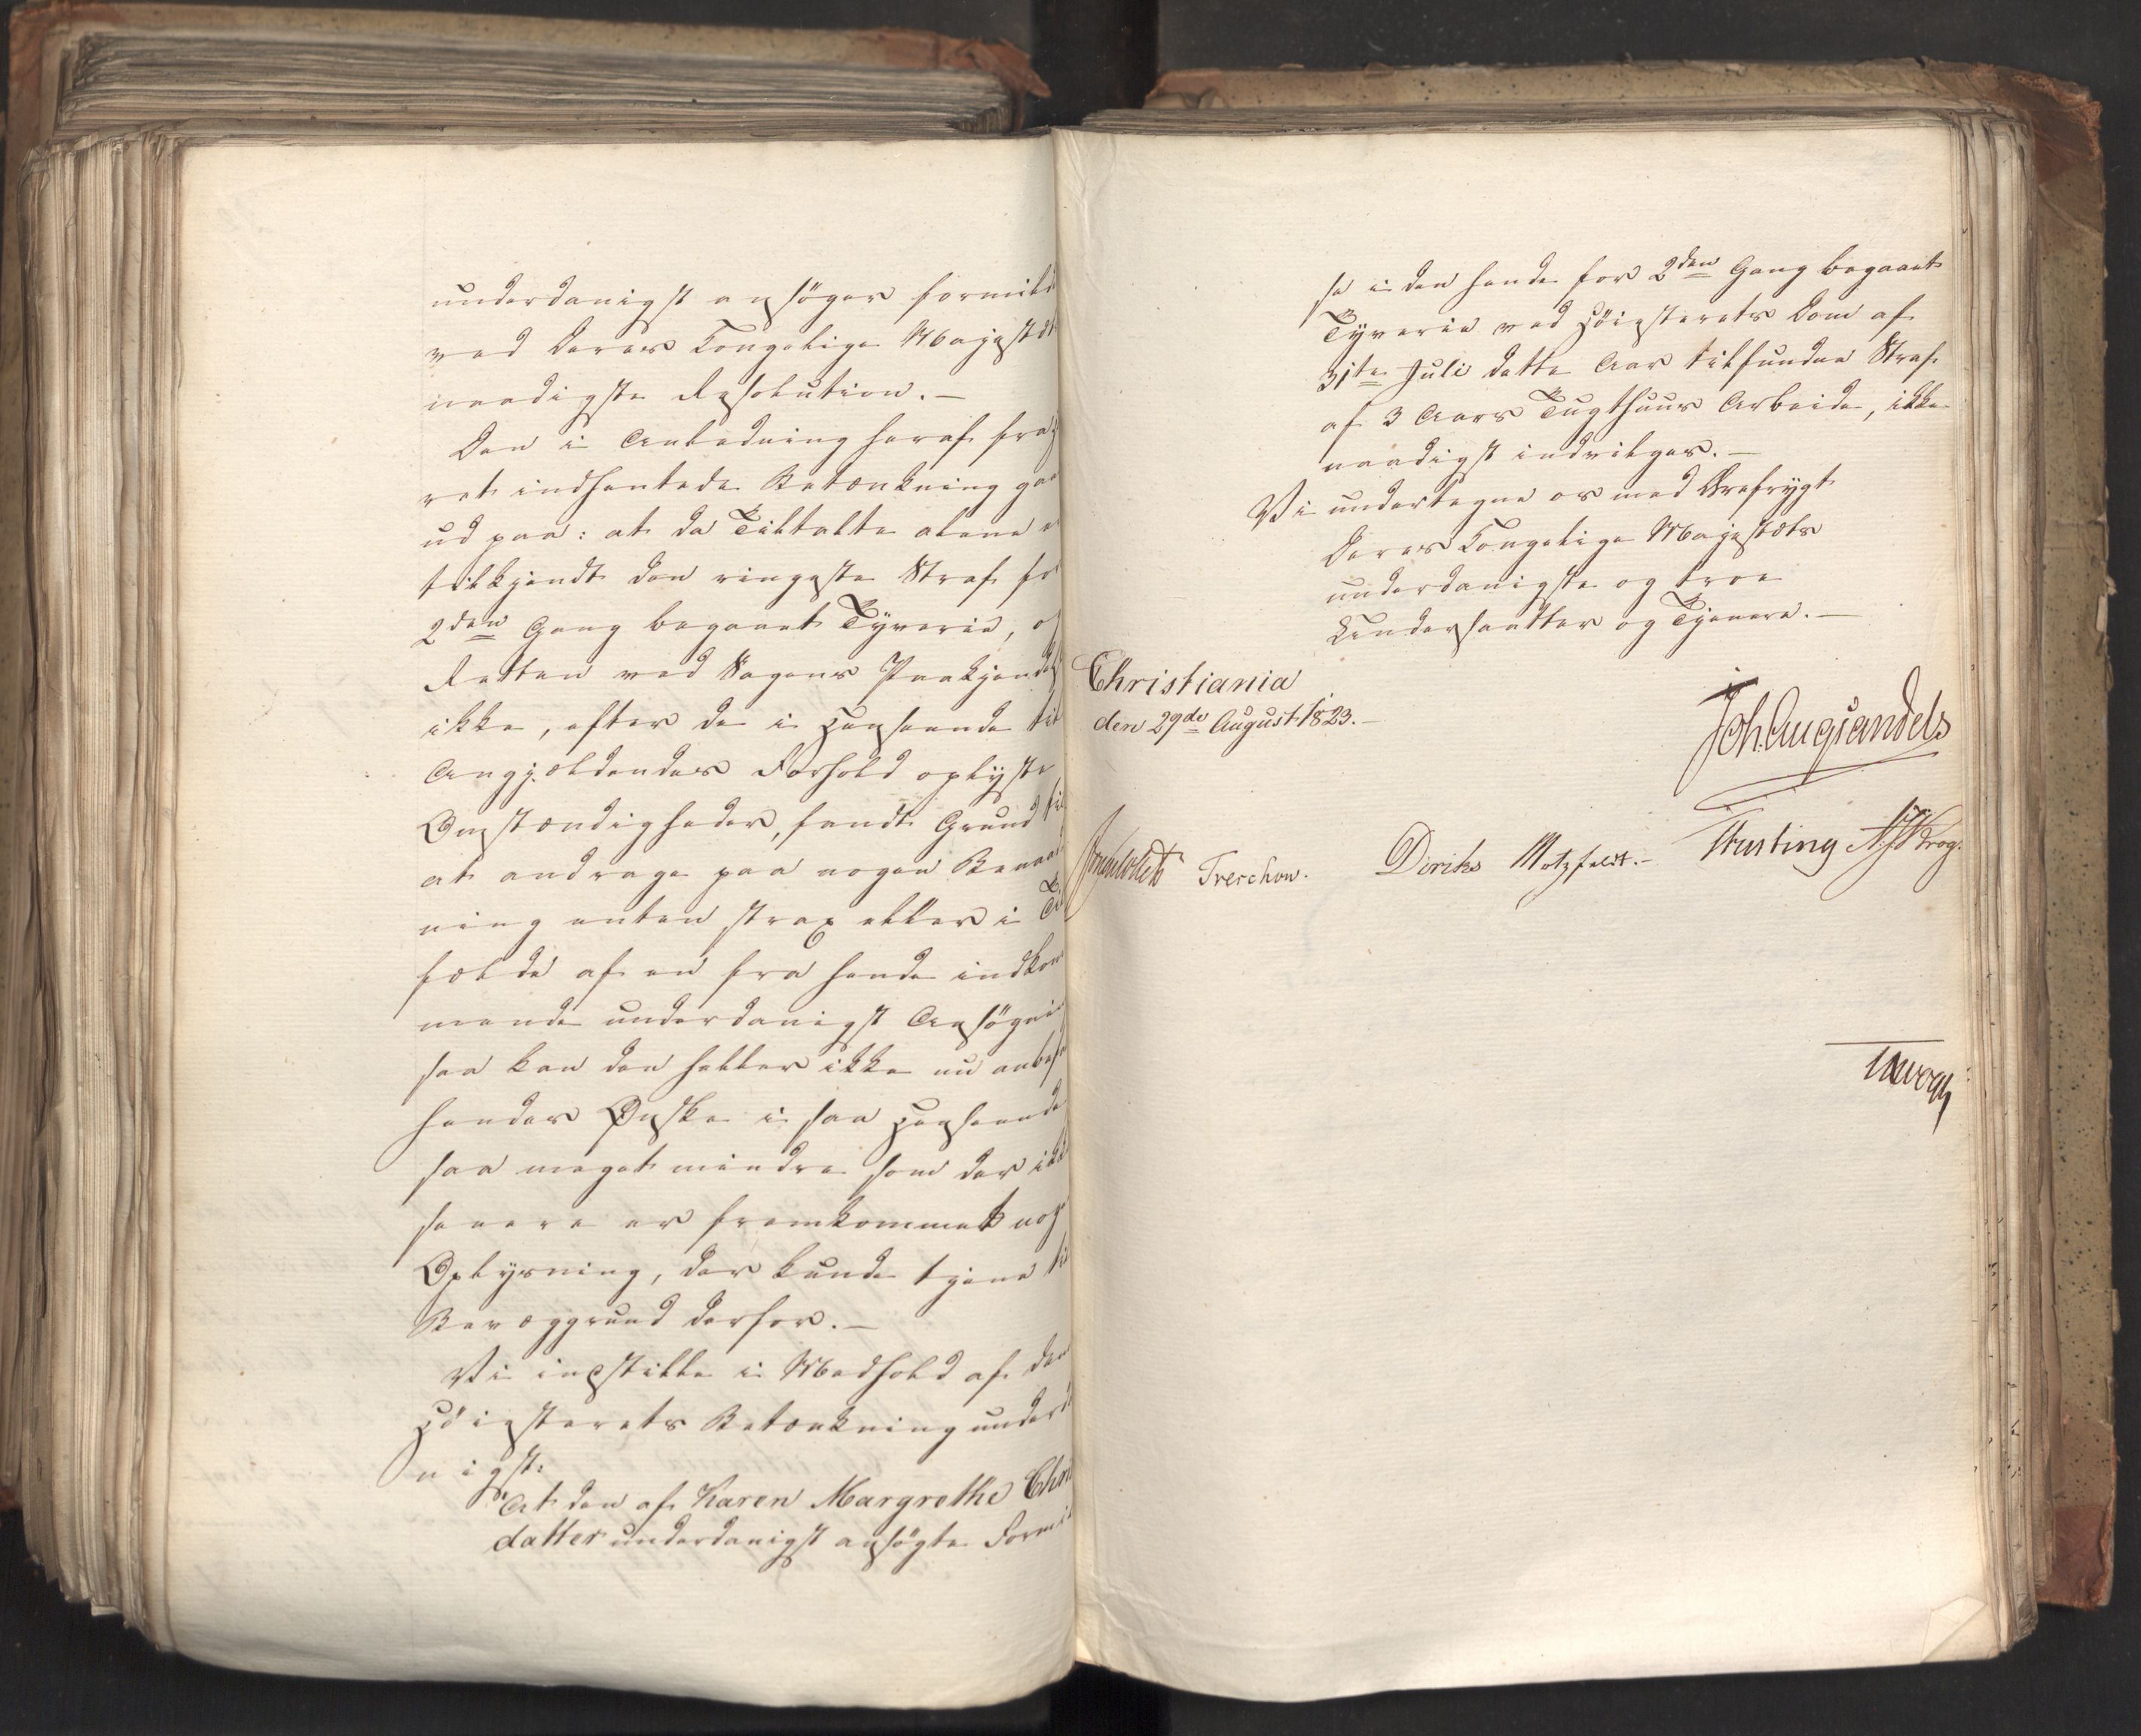 underdanigst ansøger formild
ved Deres Kongelige Majestæt
naadigste Resolution. —
Den i Anledning heraf fra
ret indhentede Betænkning gaa
ud paa: at da Tiltalte alene e
tilkjendt den ringeste Straf fo
2den Gang begaaet Tyverie, o
Retten ved Sagens Paakjendel
ikke, efter de i Henseende til
Angjældendes Forhold oplyste
Omstændigheder, fandt Grund til
at andrage paa nogen Benaad
ning enten strax eller i Ti
fælde af en fra hende indkom
mende underdanigst Ansøgni
saa kan den heller ikke nu anbefa
hendes Ønske i saa Henseende
saa meget mindre som der ikk
senere er fremkommet nog
Oplysning, der kunde tjene til
Bevæggrund derfor. —
Vi indstille i Medhold af den
Høiesterets Betænkning underd
nigst:
At den af Karen Margrethe Chri
datter underdanigst ansøgte Formi
se i den hende for 2den Gang begaaet
Tyverie ved Høiesterets Dom af
31te Juli dette Aar tilfundne Straf
af 3 Aars Tugthuus Arbeide, ikke
naadigst indvilges. —
Vi undertegne os med Ærefrygt
Deres Kongelige Majestæts
underdanigste og troe
Undersaatter og Tjenere. —
Christiania
den 29de August 1823. —
Joh. Aug Sandels
Treschow. Diriks Motzfeldt. — Krog.